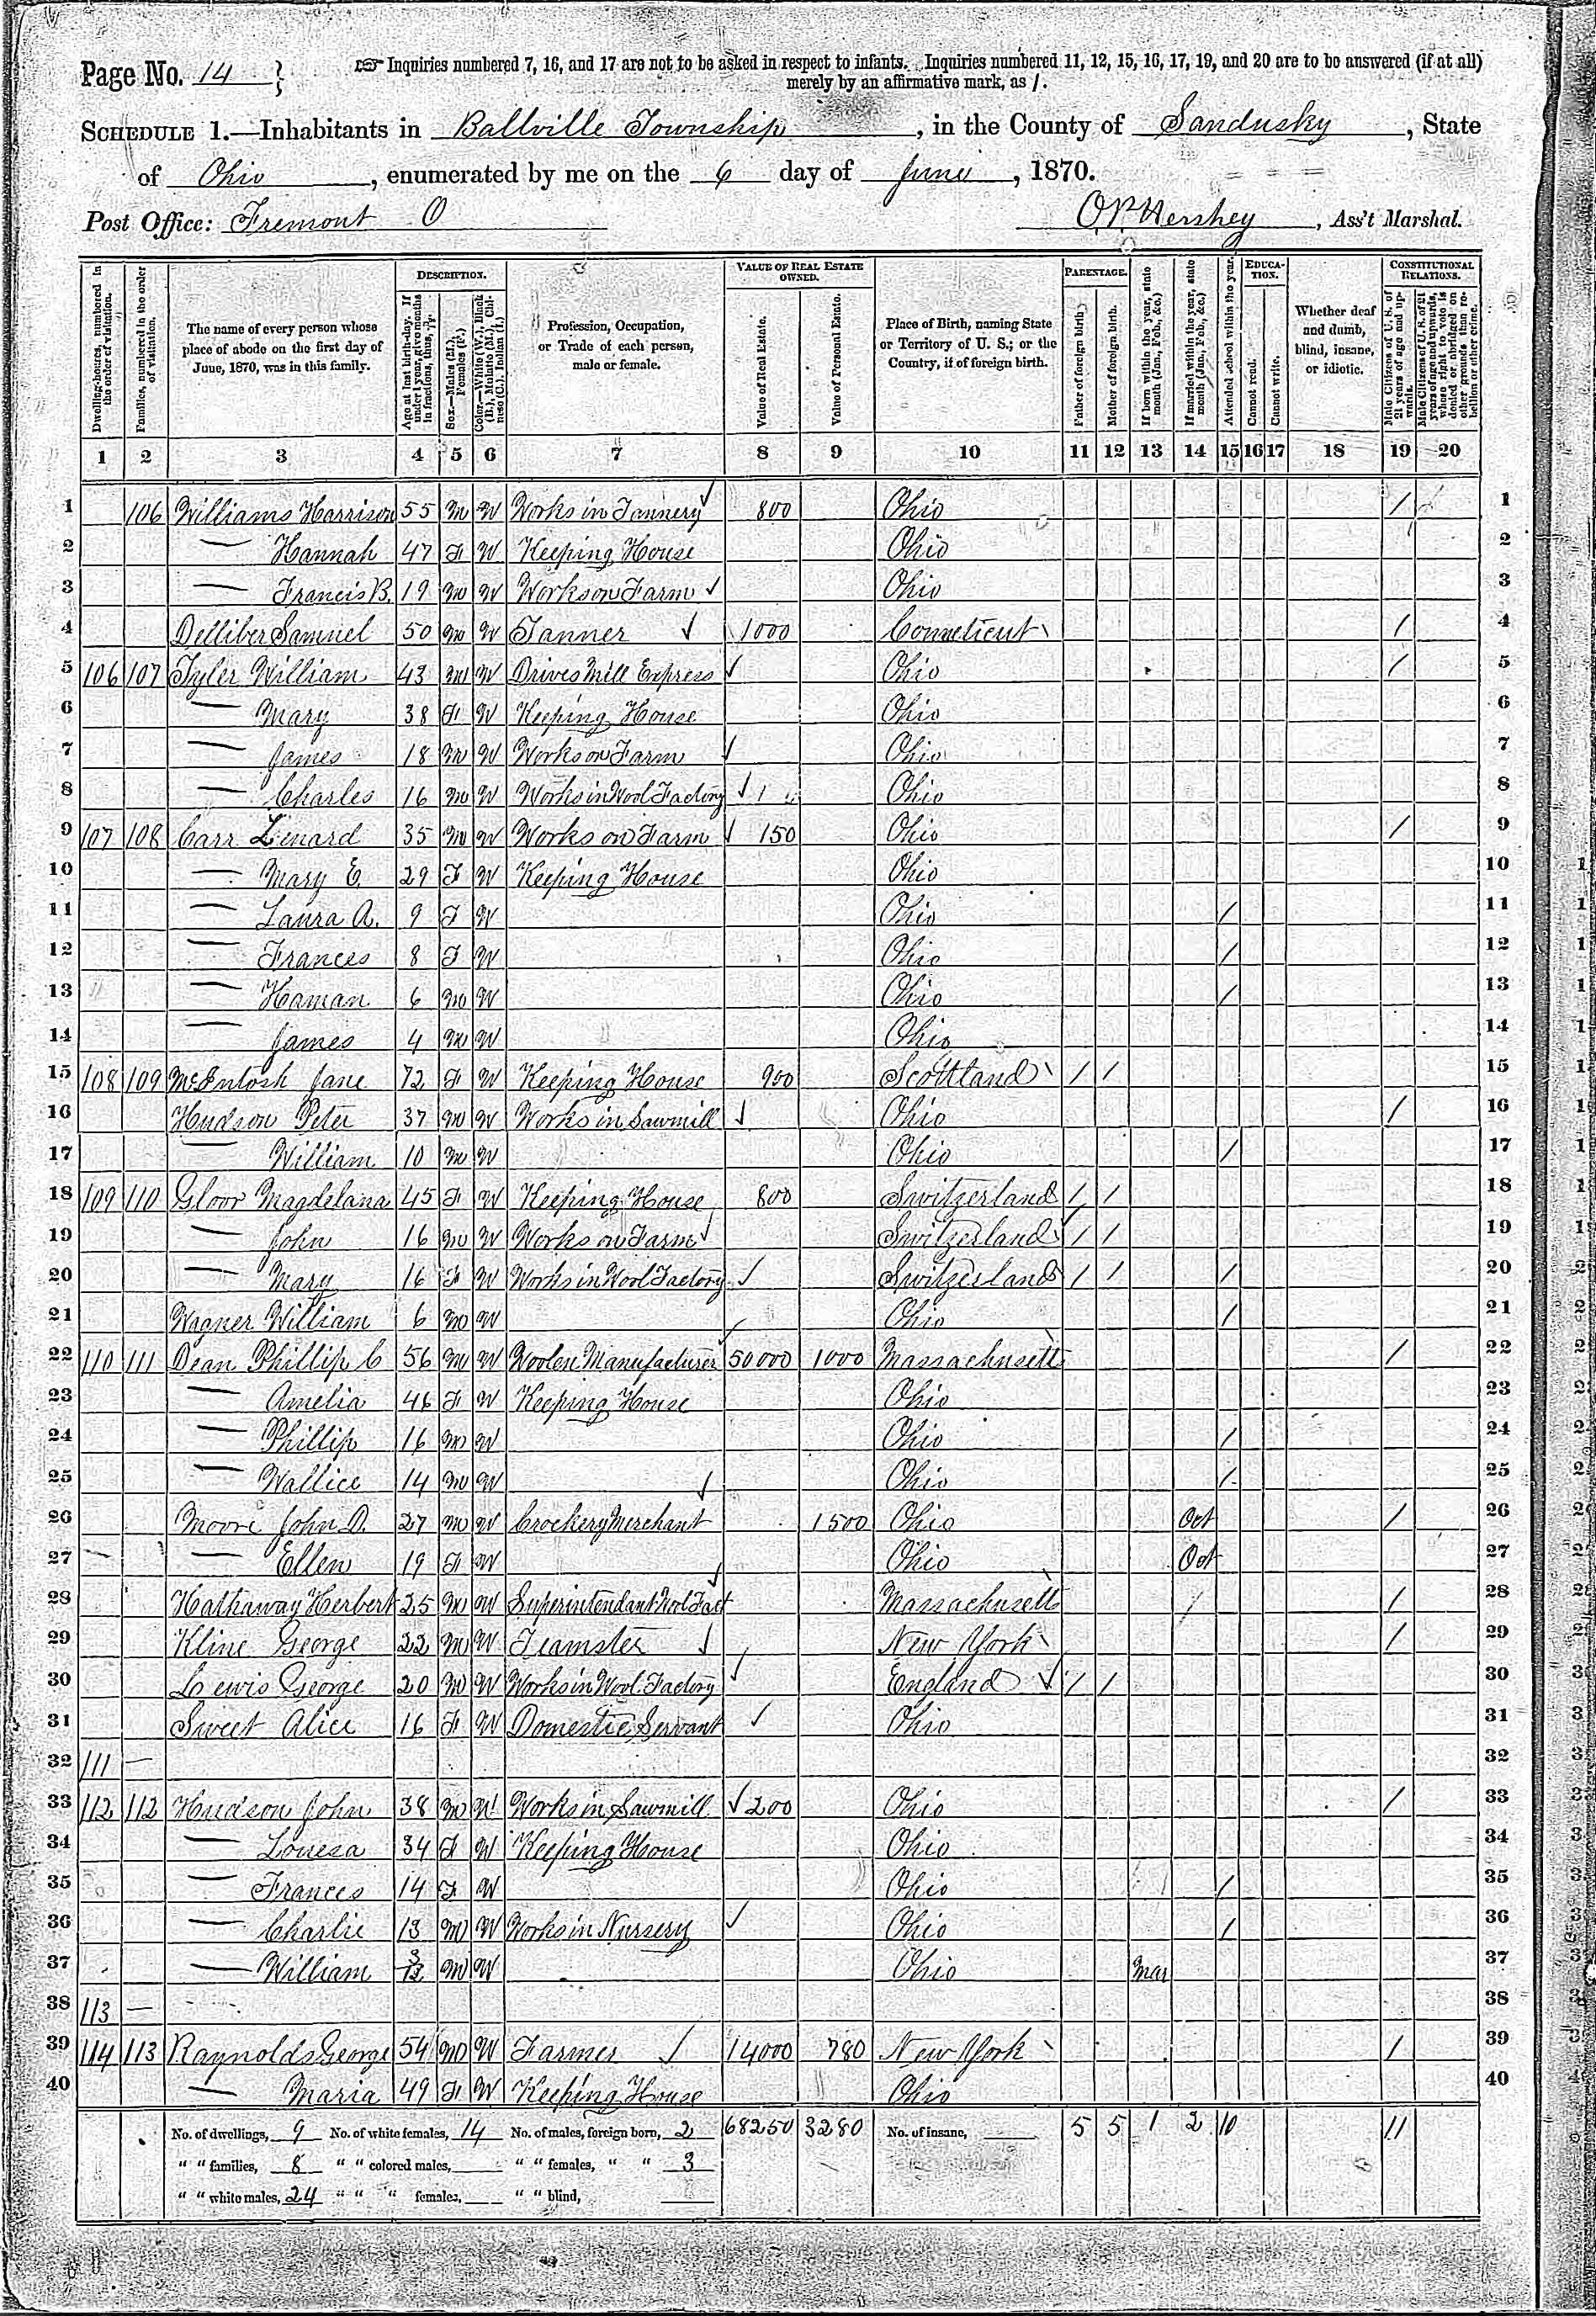 Page No. 14 }
☞ Inquiries numbered 7, 16, and 17 are not to be asked in respect to infants. Inquiries numbered 11, 12, 15, 16, 17, 19, and 20 are to be answered (if at all)
merely by an affirmative mark, as /.
SCHEDULE 1.—Inhabitants in Ballville Township, in the County of Sandusky, State
of Ohio, enumerated by me on the 6 day of June, 1870.
Post Office: Fremont O
O P Hershey, Ass't Marshal.
Dwelling-houses, numbered in the order of visitation.
Families, numbered in the order of visitation.
The name of every person whose place of abode on the first day of June, 1870, was in this family.
DESCRIPTION.
Age at last birth-day. If under 1 year, give months in fractions, thus,
Sex.—Males (M.), Females (F.)
Color.—White (W.), Black (B.), Mulatto (M.), Chinese (C.), Indian (I.)
Profession, Occupation, or Trade of each person, male or female.
VALUE OF REAL ESTATE OWNED.
Value of Real Estate.
Value of Personal Estate.
Place of Birth, naming State or Territory of U. S.; or the Country, if of foreign birth.
PARENTAGE.
Father of foreign birth
Mother of foreign birth.
If born within the year, state month (Jan., Feb., &c.)
If married within the year, state month (Jan., Feb., &c.)
Attended school within the year.
EDUCATION.
Cannot read.
Cannot write.
Whether deaf and dumb, blind, insane, or idiotic.
CONSTITUTIONAL RELATIONS.
Male Citizens of U. S. of 21 years of age and upwards.
Male Citizens of U. S. of 21 years of age and upwards, whose right to vote is denied or abridged on other grounds than rebellion or other crime.
1 2 3 4 5 6 7 8 9 10 11 12 13 14 15 16 17 18 19 20
1 106 Williams Harrison 55 M W Works in Tannery ✓ 800 Ohio / 1
2 — Hannah 47 F W Keeping House Ohio 2
3 — Francis B. 19 M W Works on Farm ✓ Ohio 3
4 Delliber Samuel 50 M W Tanner ✓ 1000 Conneticut / 4
5 106 107 Tyler William 43 M W Drives Mill Express ✓ Ohio / 5
6 — Mary 38 F W Keeping House Ohio 6
7 — James 18 M W Works on Farm ✓ Ohio 7
8 — Charles 16 M W Works in Wool Factory ✓ Ohio 8
9 107 108 Carr Lenard 35 M W Works on Farm ✓ 150 Ohio / 9
10 — Mary E. 29 F W Keeping House Ohio 10
11 — Laura A. 9 F W Ohio / 11
12 — Frances 8 F W Ohio / 12
13 — Haman 6 M W Ohio / 13
14 — James 4 M W Ohio 14
15 108 109 McIntosh Jane 72 F W Keeping House 900 Scottland / / 15
16 Hudson Peter 37 M W Works in Sawmill ✓ Ohio / 16
17 — William 10 M W Ohio / 17
18 109 110 Gloor Magdelana 45 F W Keeping House 800 Switzerland / / 18
19 — John 16 M W Works on Farm ✓ Switzerland / / 19
20 — Mary 16 F W Works in Wool Factory ✓ Switzerland / / / 20
21 Wagner William 6 M W Ohio / 21
22 110 111 Dean Phillip C 56 M W Woolen Manufacturer ✓ 50000 1000 Massachusetts / 22
23 — Amelia 46 F W Keeping House Ohio 23
24 — Phillip 16 M W Ohio / 24
25 — Wallice 14 M W Ohio / 25
26 Moore John D. 27 M W Crockery Merchant ✓ 1500 Ohio Oct / 26
27 — Ellen 19 F W Ohio Oct 27
28 Hathaway Herbert 25 M W Superintendant Wool Fact ✓ Massachusetts / 28
29 Kline George 22 M W Teamster ✓ New York / 29
30 Lewis George 20 M W Works in Wool Factory ✓ England ✓ / / 30
31 Sweet Alice 16 F W Domestic Servant ✓ Ohio 31
32 111 — 32
33 112 112 Hudson John 38 M W Works in Sawmill ✓ 200 Ohio / 33
34 — Louesa 34 F W Keeping House Ohio 34
35 — Frances 14 F W Ohio / 35
36 — Charlie 13 M W Works in Nursery ✓ Ohio / 36
37 — William 3/12 M W Ohio Mar 37
38 113 — 38
39 114 113 Raynolds George 54 M W Farmer ✓ 14000 780 New York / 39
40 — Maria 49 F W Keeping House Ohio 40
No. of dwellings, 9 No. of white females, 14 No. of males, foreign born, 2 68250 3280 No. of insane, 5 5 1 2 10 11
" " families, 8 " " colored males, " " females, " " 3
" " white males, 24 " " " females, " " blind,